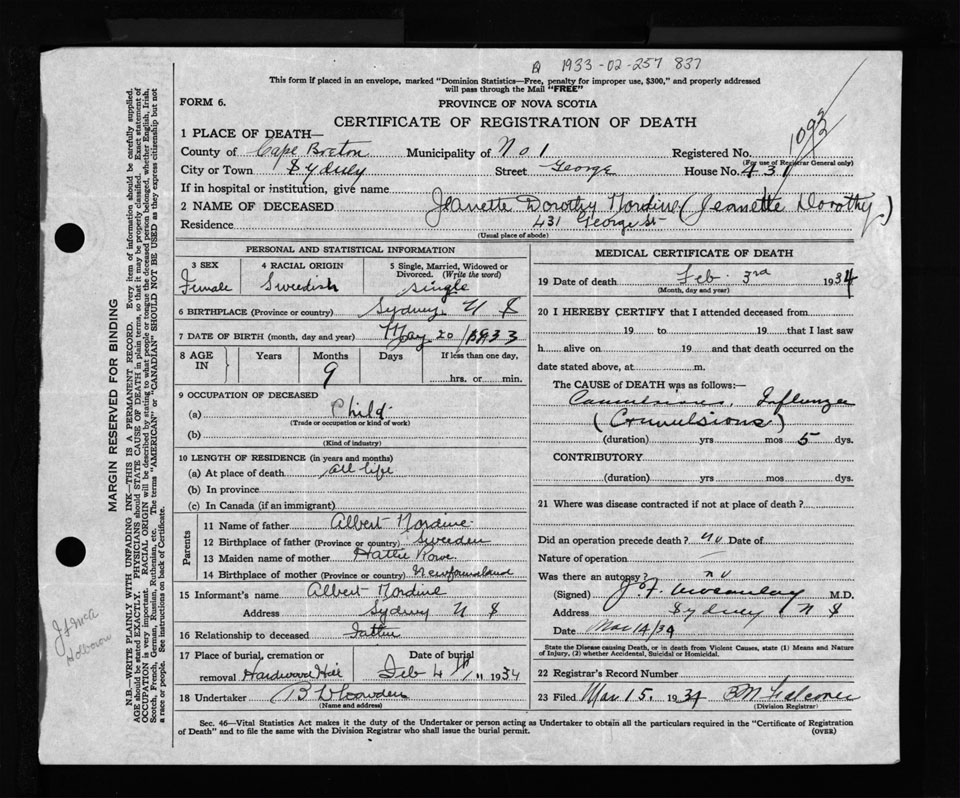 1933-02-257 837
This form if placed in an envelope, marked "Dominion Statistics—Free, penalty for improper use, $300," and properly addressed
will pass through the Mail "FREE"
FORM 6.
PROVINCE OF NOVA SCOTIA
CERTIFICATE OF REGISTRATION OF DEATH
1 PLACE OF DEATH—
County of Cape Breton Municipality of No 1 Registered No. 1093
(For use of Registrar General only)
City or Town Sydney Street George House No. 431
If in hospital or institution, give name
2 NAME OF DECEASED Jeanette Dorothy Nordine (Jeanette Dorothy)
Residence 431 George St
(Usual place of abode)
PERSONAL AND STATISTICAL INFORMATION
3 SEX Female
4 RACIAL ORIGIN Swedish
5 Single, Married, Widowed or
Divorced. (Write the word)
single
6 BIRTHPLACE (Province or country) Sydney N S
7 DATE OF BIRTH (month, day and year) May 20/1933
8 AGE IN Years Months 9 Days If less than one day,
hrs. or min.
9 OCCUPATION OF DECEASED
(a) Child
(Trade or occupation or kind of work)
(b)
(Kind of industry)
10 LENGTH OF RESIDENCE (in years and months)
(a) At place of death all life
(b) In province
(c) In Canada (if an immigrant)
Parents
11 Name of father Albert Nordine
12 Birthplace of father (Province or country) Sweden
13 Maiden name of mother Hattie Rowe
14 Birthplace of mother (Province or country) Newfoundland
15 Informant's name Albert Nordine
Address Sydney N S
16 Relationship to deceased Father
17 Place of burial, cremation or
removal Hardwood Hill
Date of burial
Feb 4th 1934
18 Undertaker
(Name and address)
MEDICAL CERTIFICATE OF DEATH
19 Date of death Feb. 3rd 1934
(Month, day and year)
20 I HEREBY CERTIFY that I attended deceased from
19 to 19 that I last saw
h alive on 19 and that death occurred on the
date stated above, at m.
The CAUSE OF DEATH was as follows:—
Convulsions, Influenza
(Convulsions)
(duration) yrs mos 5 dys.
CONTRIBUTORY
(duration) yrs mos dys.
21 Where was disease contracted if not at place of death?
Did an operation precede death? no Date of
Nature of operation
Was there an autopsy? no
(Signed) J. F. M.D.
Address Sydney N S
Date Mar 14/34
State the Disease causing Death, or in death from Violent Causes, state (1) Means and Nature
of Injury, (2) whether Accidental, Suicidal or Homicidal.
22 Registrar's Record Number
23 Filed Mar 15. 1934 Falconer
(Division Registrar)
Sec. 46—Vital Statistics Act makes it the duty of the Undertaker or person acting as Undertaker to obtain all the particulars required in the "Certificate of Registration
of Death" and to file the same with the Division Registrar who shall issue the burial permit.
(OVER)
MARGIN RESERVED FOR BINDING
N.B.—WRITE PLAINLY WITH UNFADING INK—THIS IS A PERMANENT RECORD. Every item of information should be carefully supplied.
AGE should be stated EXACTLY. PHYSICIANS should STATE CAUSE OF DEATH in plain terms, so that it may be properly classified. Exact statement of
OCCUPATION is very important. RACIAL ORIGIN will be described by stating to what people or tongue the deceased person belonged, whether English, Irish,
Scotch, French, German, Russian, Ruthenian, etc. The terms "AMERICAN" or "CANADIAN" SHOULD NOT BE USED as they express citizenship but not
a race or people. See instructions on back of Certificate.